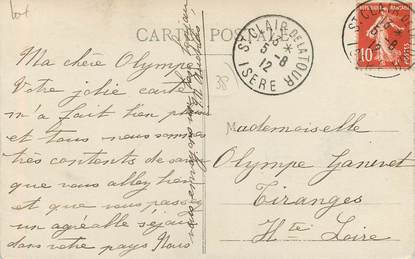 CARTE POSTALE
ST CLAIR DE LA TOUR
5 - 8
12
ISERE
10
38
Ma chère Olympe
Votre jolie carte
m'a fait bien plaisir
et tous nous sommes
très contents de savoir
que vous allez bien
et que vous passez
un agréable séjour
dans votre pays Nous
Mademoiselle
Olympe Janivet
Tiranges
Hte Loire